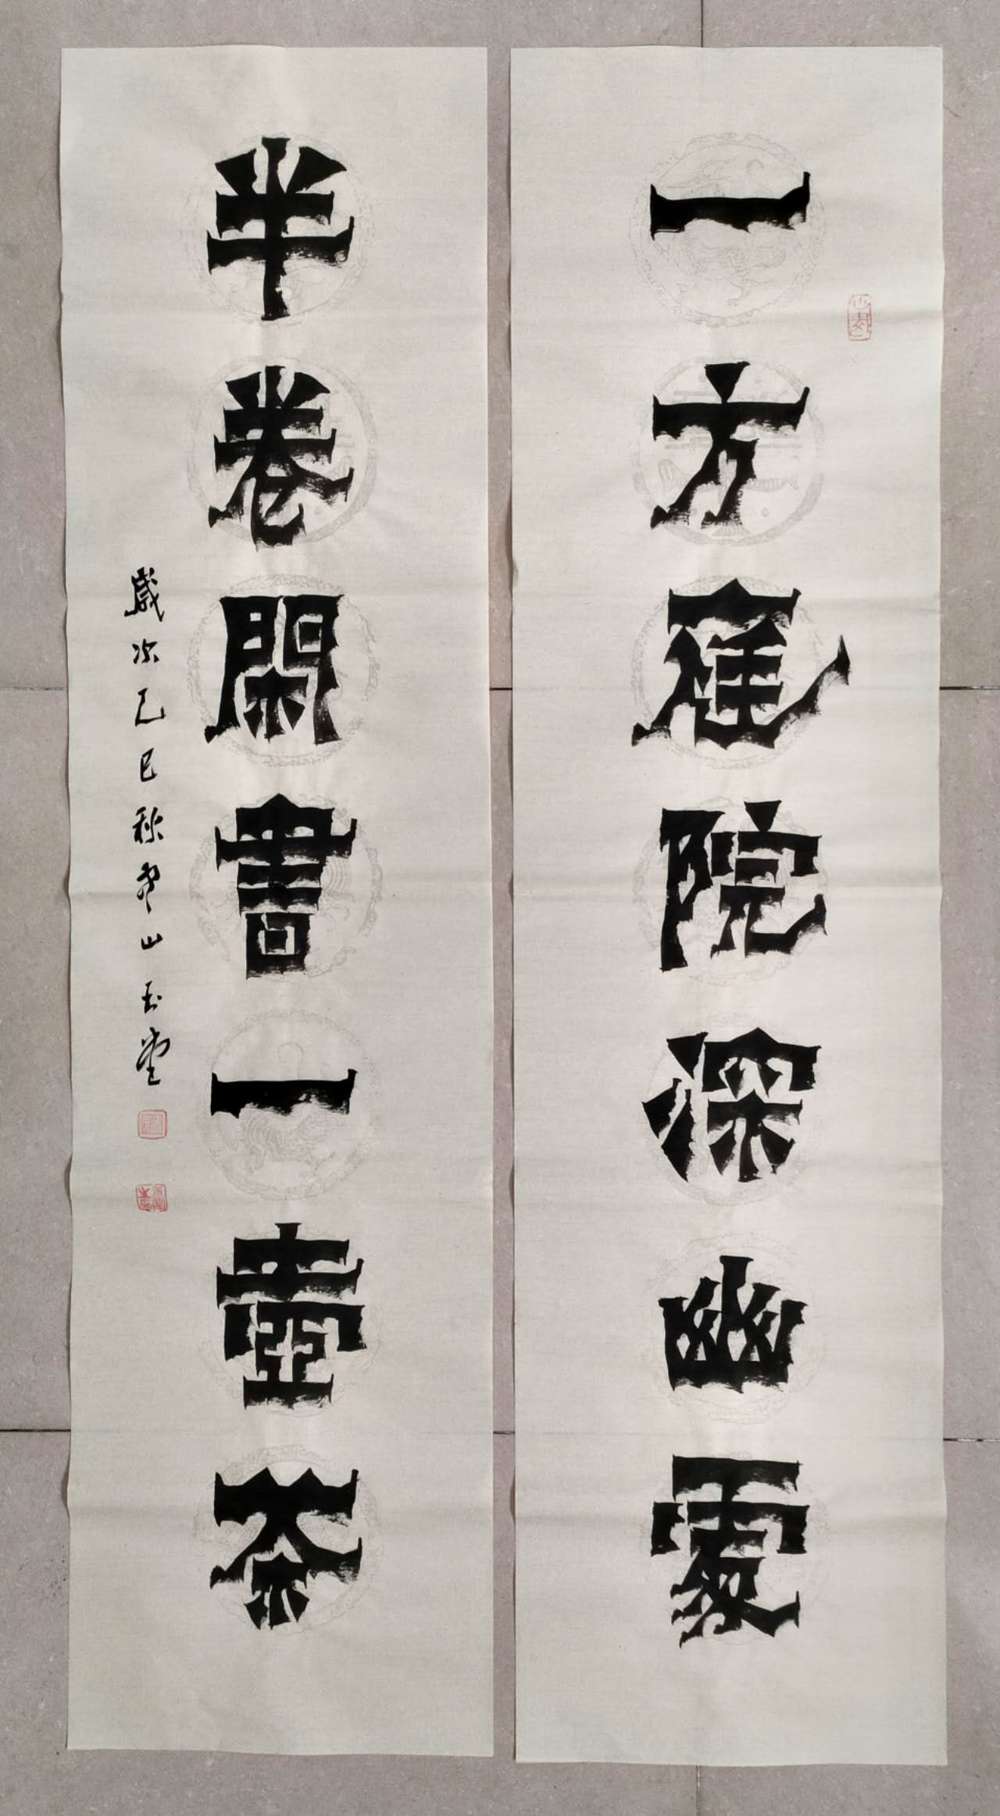 一方庭院深幽處
半卷閑書一壺茶
歲次乙巳秋月山玉堂